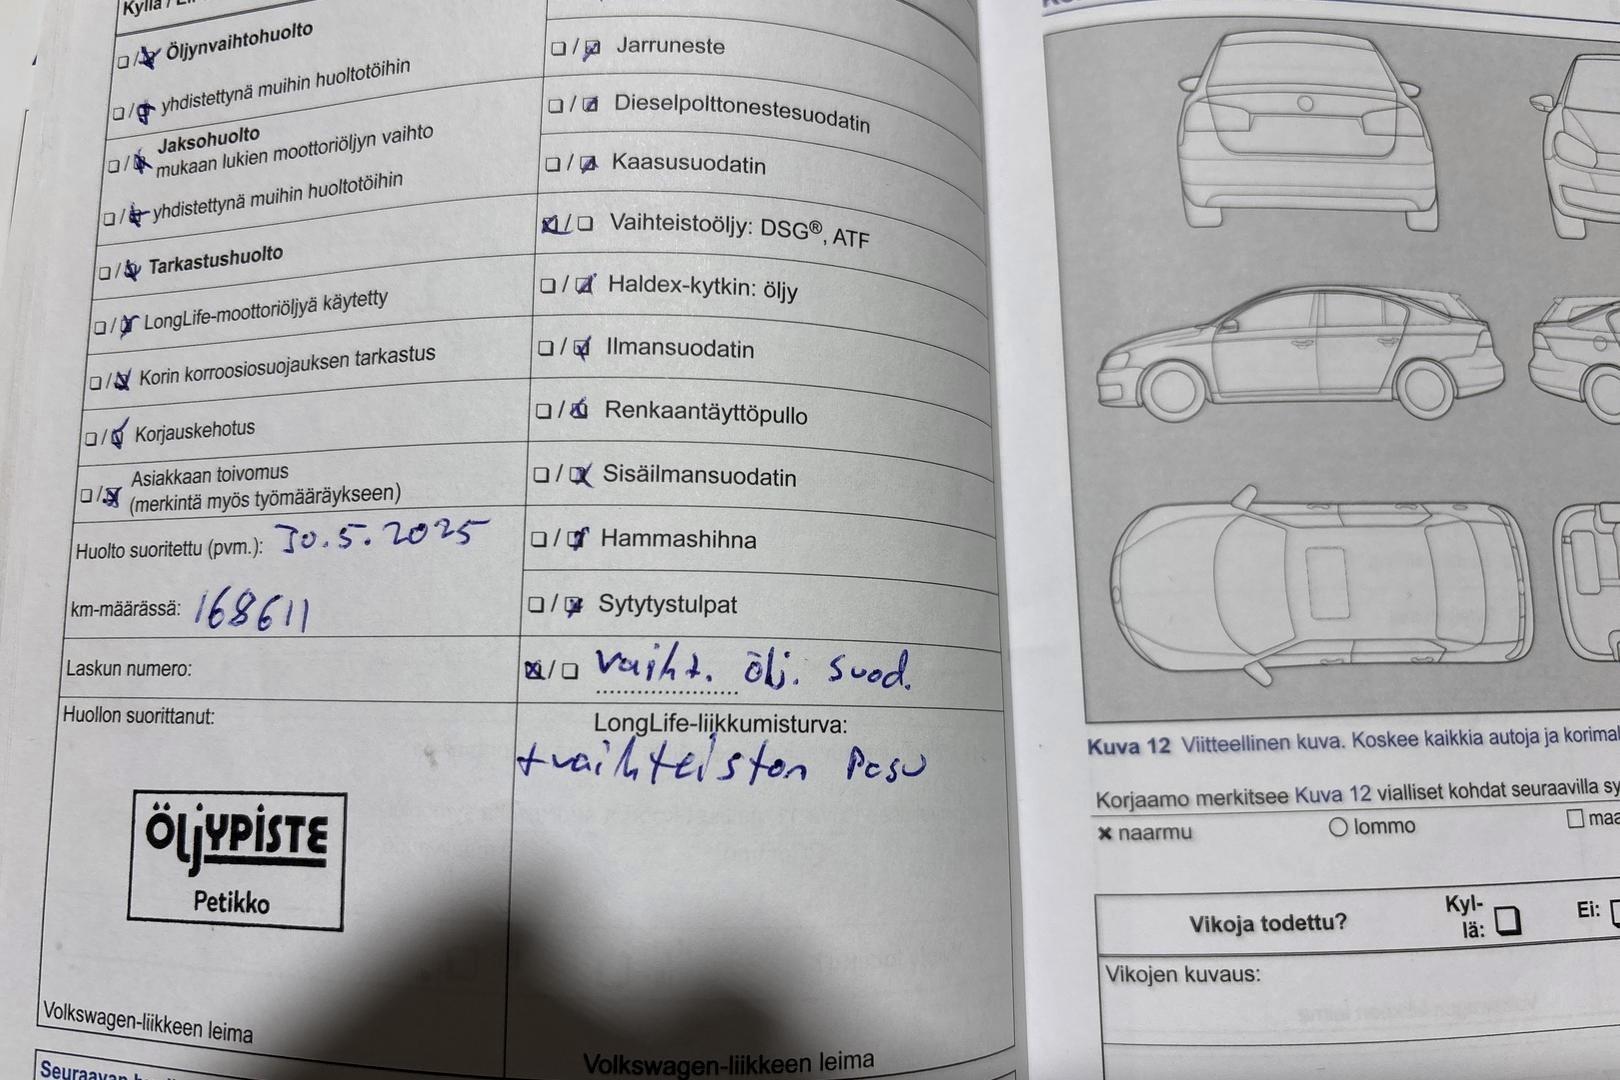 Kyllä /
Öljynvaihtohuolto
yhdistettynä muihin huoltotöihin
Jaksohuolto
mukaan lukien moottoriöljyn vaihto
yhdistettynä muihin huoltotöihin
Tarkastushuolto
LongLife-moottoriöljyä käytetty
Korin korroosiosuojauksen tarkastus
Korjauskehotus
Asiakkaan toivomus
(merkintä myös työmääräykseen)
Huolto suoritettu (pvm.): 30.5.2025
km-määrässä: 168611
Laskun numero:
Huollon suorittanut:
ÖljYPISTE
Petikko
Volkswagen-liikkeen leima
Seuraavan
Jarruneste
Dieselpolttonestesuodatin
Kaasusuodatin
Vaihteistoöljy: DSG®, ATF
Haldex-kytkin: öljy
Ilmansuodatin
Renkaantäyttöpullo
Sisäilmansuodatin
Hammashihna
Sytytystulpat
vaiht. ölj. suod.
LongLife-liikkumisturva:
+vaihteiston Pesu
Volkswagen-liikkeen leima
Kuva 12 Viitteellinen kuva. Koskee kaikkia autoja ja
Korjaamo merkitsee Kuva 12 vialliset kohdat seuraavilla
naarmu
lommo
Vikoja todettu?
Kyl-
lä:
Ei:
Vikojen kuvaus: